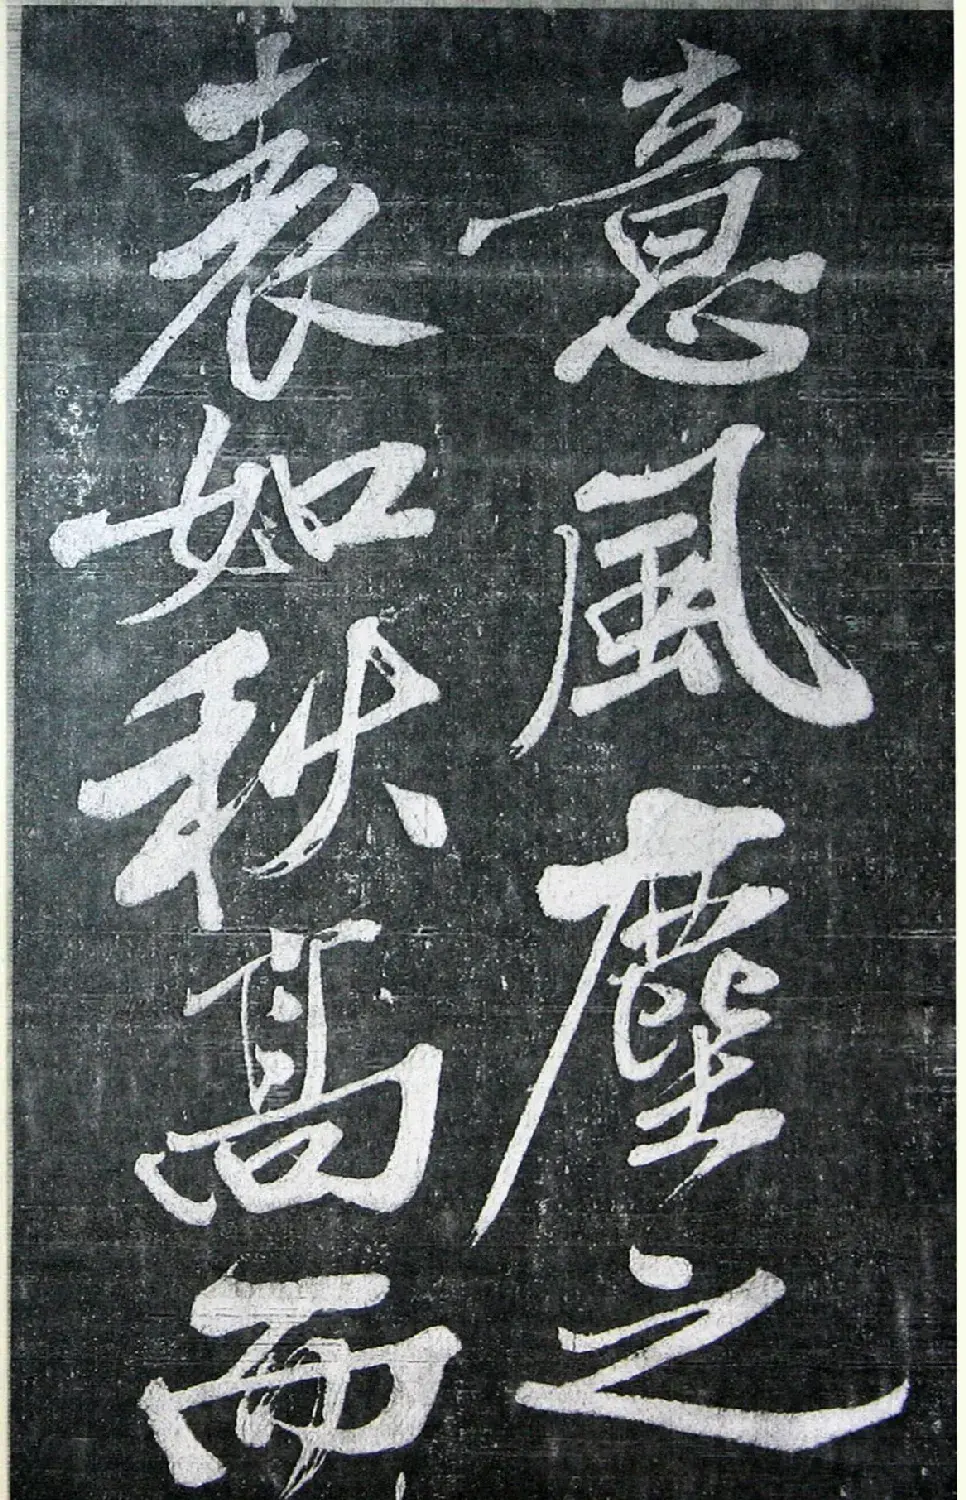 意風塵之
表如秋高而